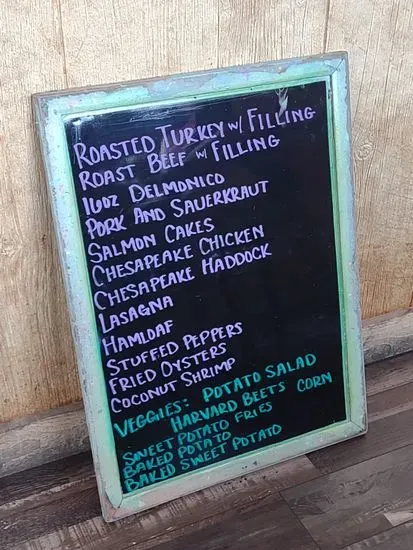 ROASTED TURKEY W/ FILLING
ROAST BEEF W/ FILLING
16OZ DELMONICO
PORK AND SAUERKRAUT
SALMON CAKES
CHESAPEAKE CHICKEN
CHESAPEAKE HADDOCK
LASAGNA
HAMLOAF
STUFFED PEPPERS
FRIED OYSTERS
COCONUT SHRIMP
VEGGIES: POTATO SALAD
HARVARD BEETS CORN
SWEET POTATO FRIES
BAKED POTATO
BAKED SWEET POTATO